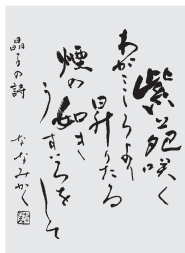 紫苑咲く
わがこころより
昇りたる
煙の如き
うすいろをして
晶子の詩
ななみかく